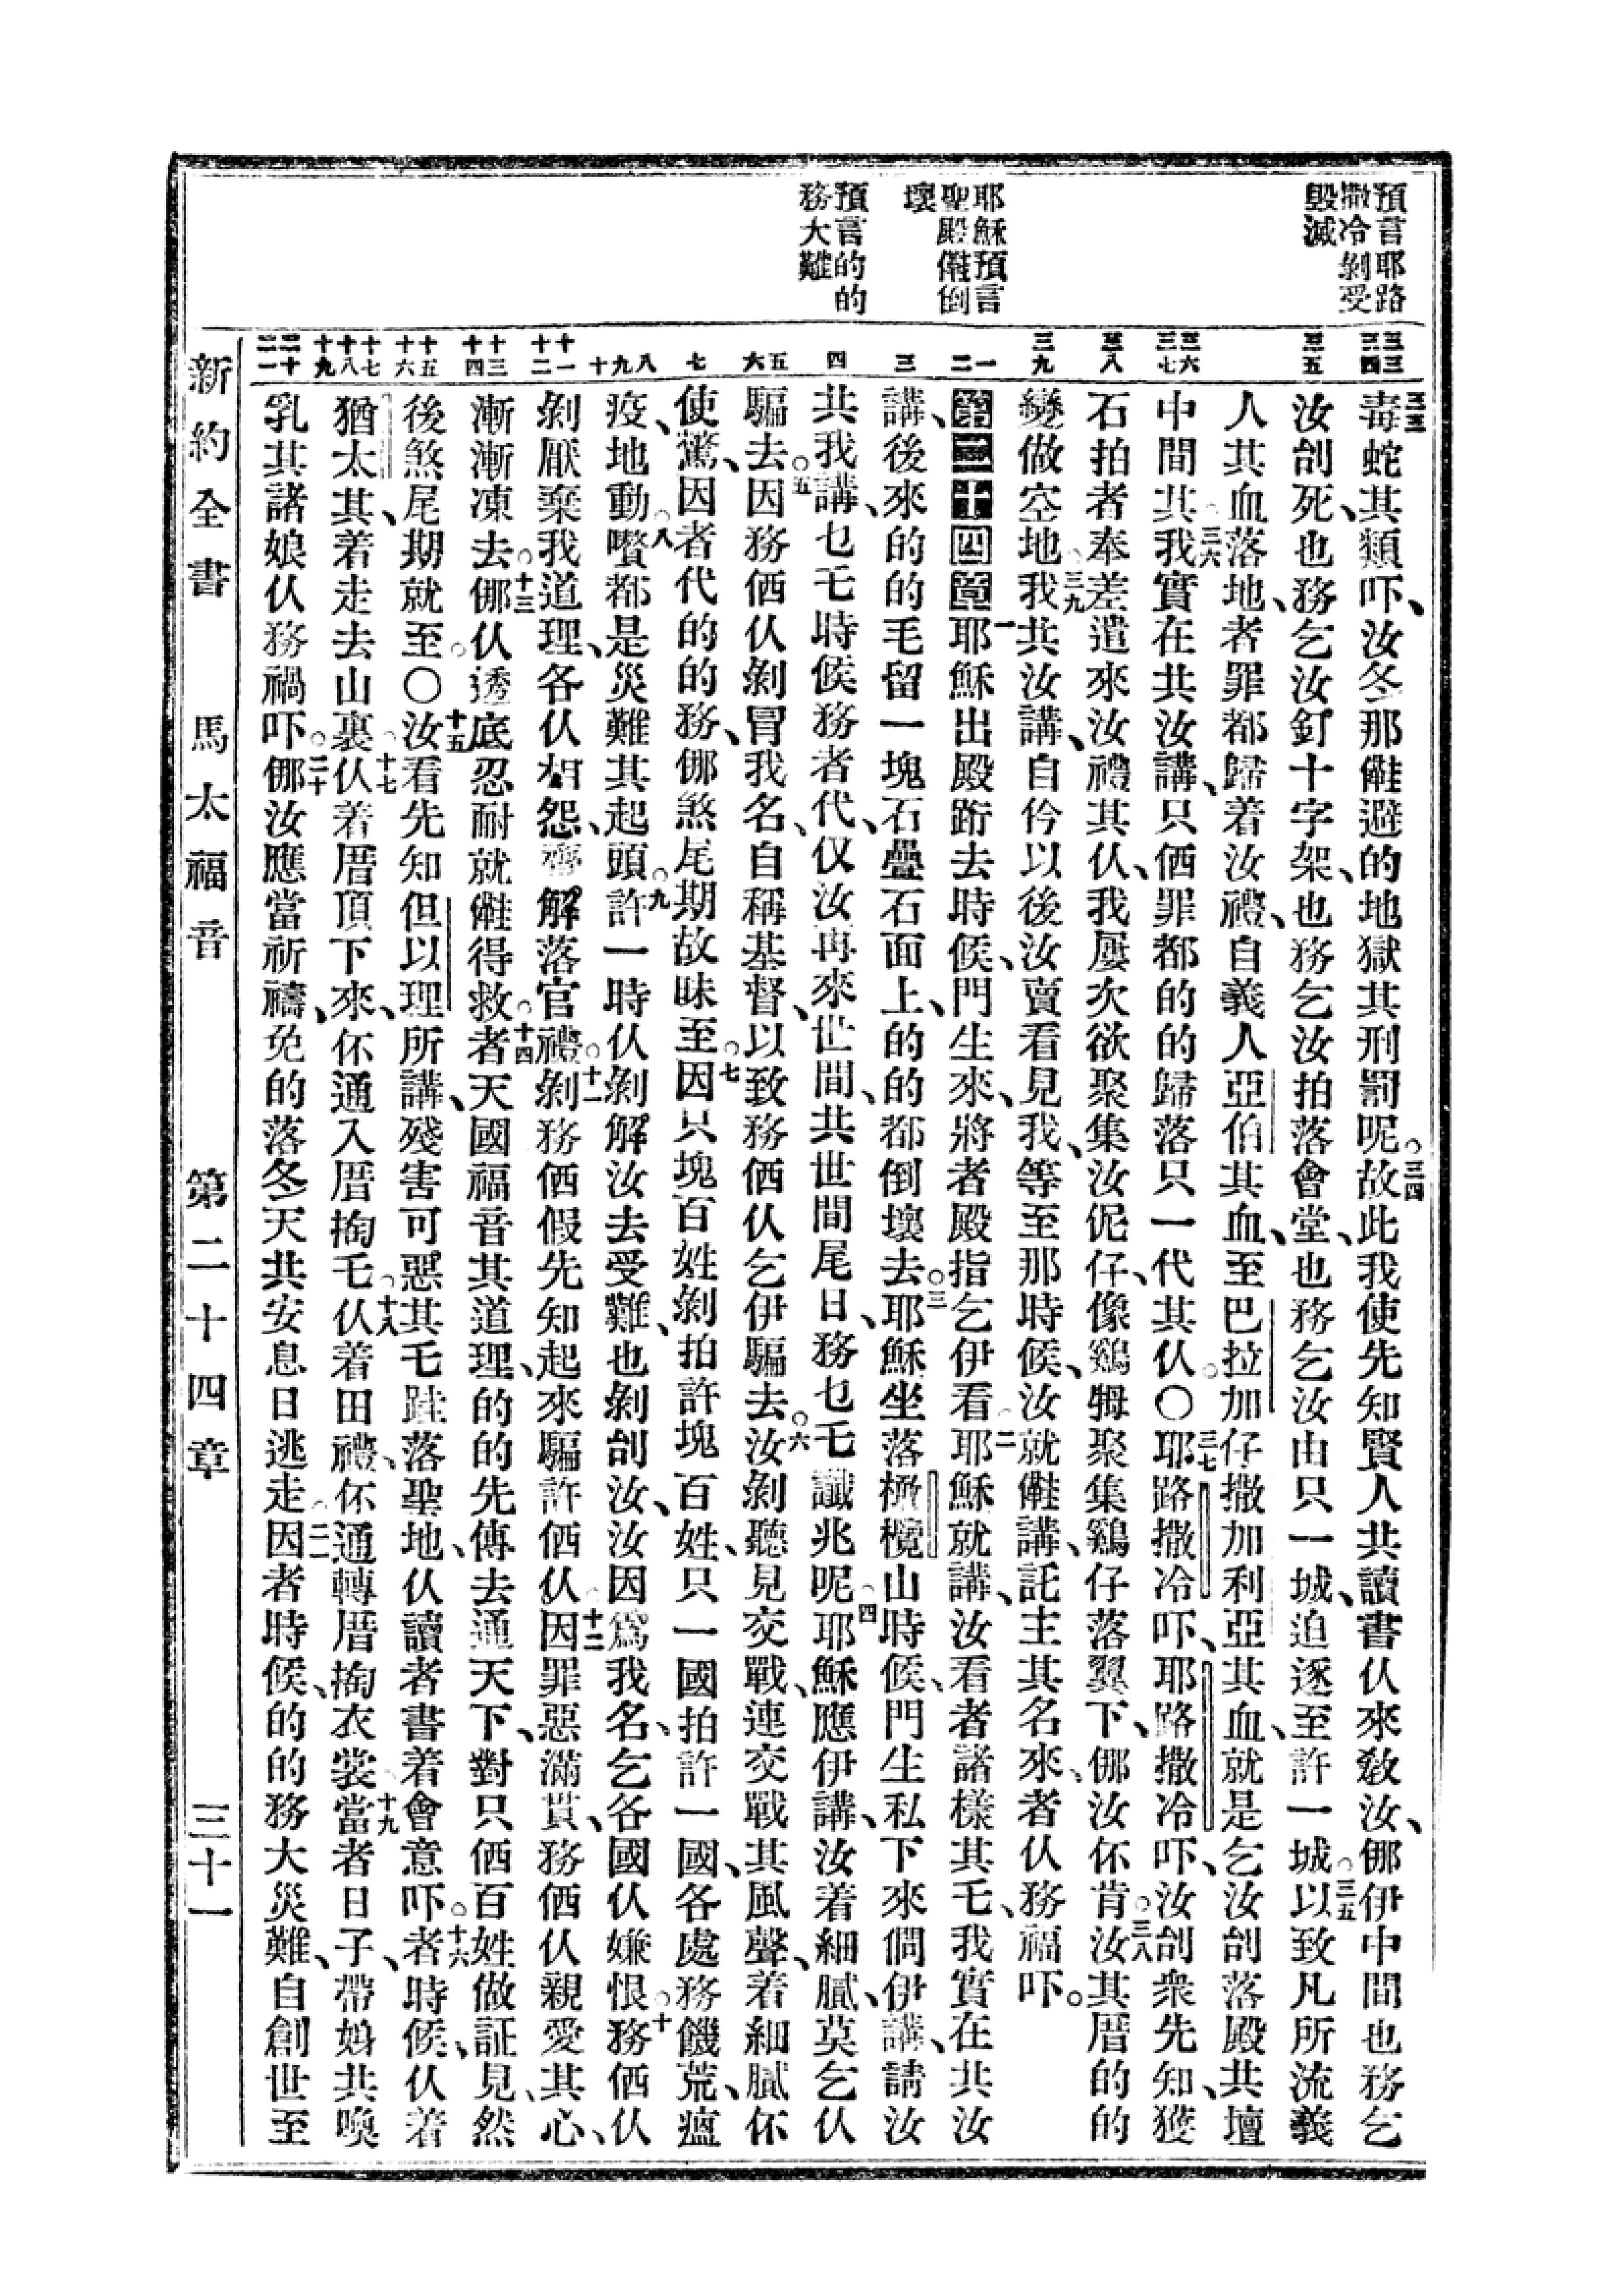 預言耶路
撒冷剝受
毀滅
耶穌預言
聖殿𣍐倒
壞
預言的的
務大難
三三
三四
三五
三六
三七
三八
三九
一
二
三
四
五
六
七
八
九
十
十一
十二
十三
十四
十五
十六
十七
十八
十九
二十
二一
三三毒蛇其類吓、汝冬那𣍐避的地獄其刑罰呢。三四故此我使先知賢人共讀書仈來敎汝、倻伊中間也務乞
汝刣死、也務乞汝釘十字架、也務乞汝拍落會堂、也務乞汝由只一城、迫逐至許一城。三五以致凡所流義
人其血落地、者罪都歸着汝禮、自義人亞伯其血、至巴拉加仔撒加利亞其血、就是乞汝刣落殿共壇
中間其。三六我實在共汝講、只仴罪都的的歸落只一代其仈。〇三七耶路撒冷吓、耶路撒冷吓、汝刣衆先知、獲
石拍者奉差遣來汝禮其仈、我屢次欲聚集汝伲仔、像鷄𤙩聚集鷄仔落翼下、倻汝伓肯。三八汝其厝的的
變做空地。三九我共汝講、自伶以後汝賣看見我、等至那時候、汝就𣍐講、託主其名來、者仈務福吓。
第二十四章一耶穌出殿跻去時候、門生來、將者殿指乞伊看。二耶穌就講、汝看者諸樣其乇、我實在共汝
講、後來的的毛留一塊石疊石面上、的的都倒壞去。三耶穌坐落橄欖山時候、門生私下來、伵伊講、請汝
共我講、乜乇時候務者代、仅汝再來世間、共世間尾日、務乜乇讖兆呢。四耶穌應伊講、汝着細膩、莫乞仈
騙去。五因務仴仈剝冒我名、自稱基督、以致務仴仈乞伊騙去。六汝剝聽見交戰、連交戰其風聲、着細膩伓
使驚、因者代的的務、倻煞尾期故昧至。七因只塊百姓剝拍許塊百姓、只一國拍許一國、各處務饑荒、瘟
疫、地動。八嚽都是災難其起頭。九許一時仈剝解汝去受難、也剝刣汝、汝因爲我名、乞各國仈嫌恨。十務仴仈
剝厭棄我道理、各仈相怨、齊解落官禮。十一剝務仴假先知起來、騙許仴仈。十二因罪惡滿貫、務仴仈親愛其心、
漸漸凍去。十三倻仈透底忍耐就𣍐得救。十四者天國福音其道理、的的先傳去通天下、對只仴百姓做証見、然
後煞尾期就至。〇十五汝看先知但以理所講、殘害可惡其乇、𨂿落聖地、仈讀者書着會意吓。十六者時候、仈着
猶太其、着走去山裏。十七仈着厝頂下來、伓通入厝掏乇。十八仈着田禮、伓通轉厝掏衣裳。十九當者日子、帶㛂共喚
乳其諸娘仈務禍吓。二十倻汝應當祈禱、免的落冬天共安息日逃走。二一因者時候、的的務大災難、自創世至
新約全書 馬太福音 第二十四章 三十一